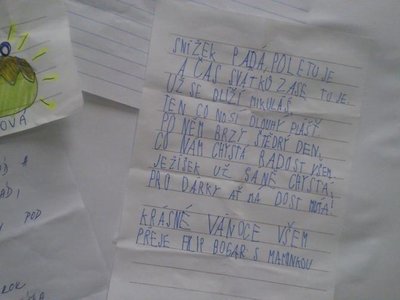 SNÍŽEK PADÁ, POLETUJE
A ČAS SVÁTKŮ ZASE TU JE.
UŽ SE BLÍŽÍ MIKULÁŠ,
TEN CO NOSÍ DLOUHÝ PLÁŠŤ.
PO NĚM BRZY ŠTĚDRÝ DEN,
CO NÁM CHYSTÁ RADOST VŠEM.
JEŽÍŠEK UŽ SANĚ CHYSTÁ,
PRO DÁRKY AŤ MÁ DOST MÍSTA!
KRÁSNÉ VÁNOCE VŠEM
PŘEJE FILIP BOGAR S MAMINKOU
OVÁ
POD
ROK